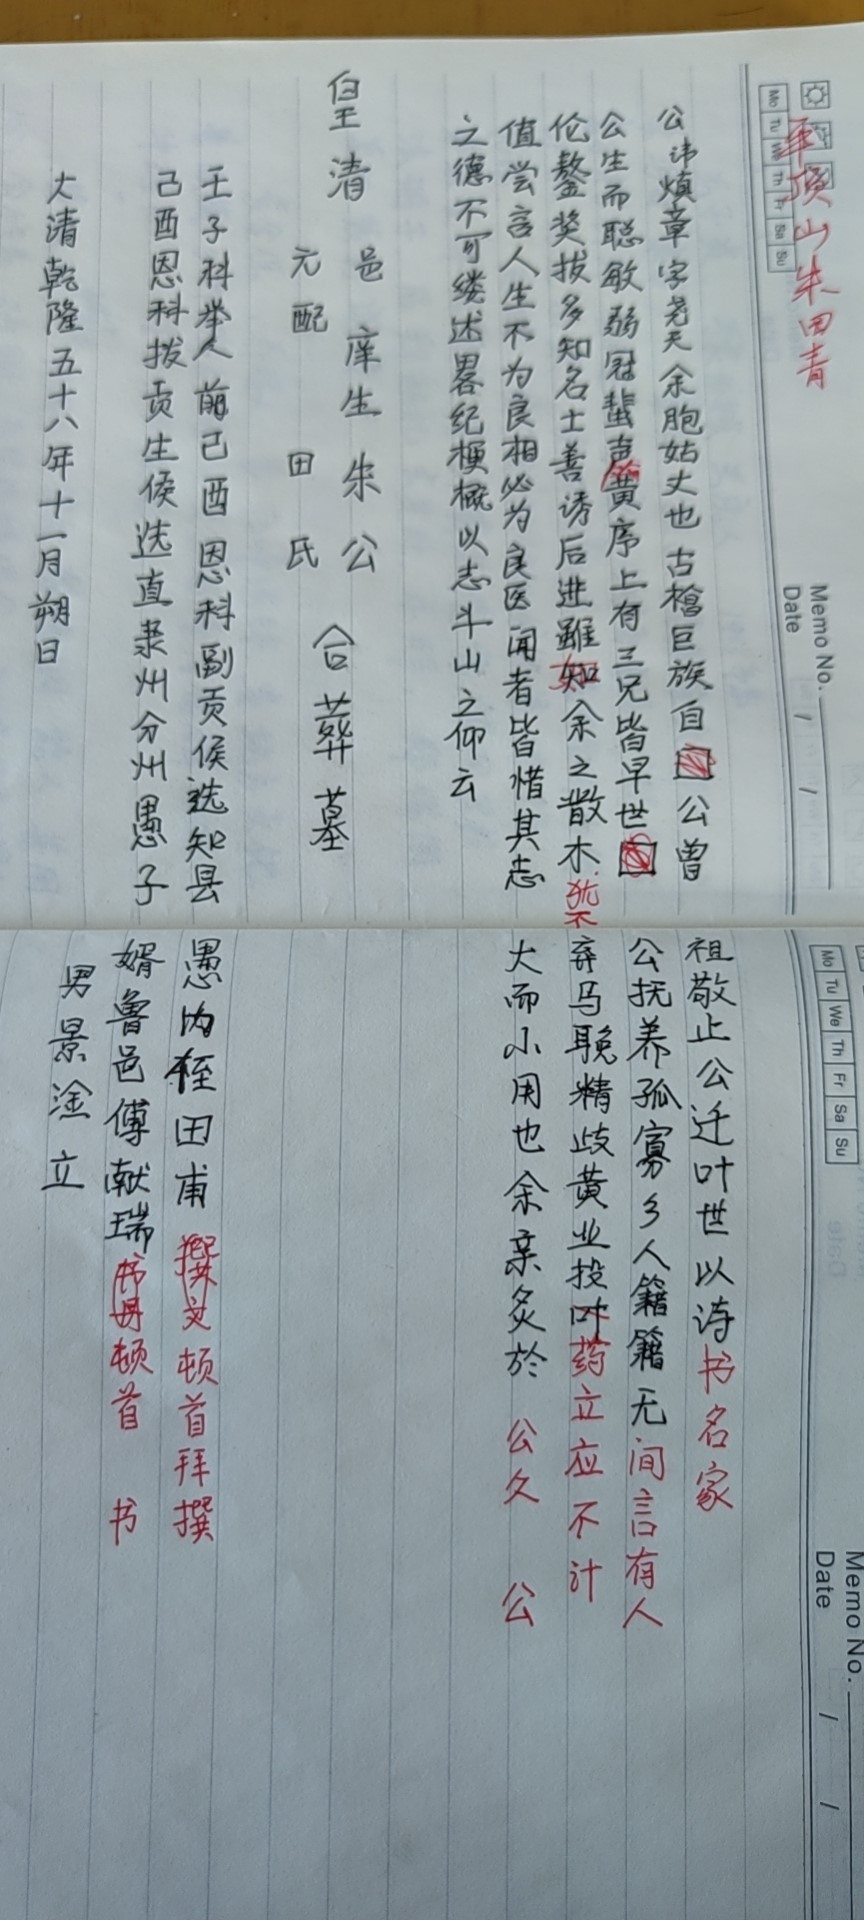 平顶山朱田青
Mo Tu We Th Fr Sa Su
Memo No.
Date / /
公讳慎章字尧天余胞姑丈也古楂巨族自公曾
公生而聪敏弱冠蜚声黄序上有三兄皆早世
伦鳌奖拔多知名士善诱后进虽知余之散木犹不
值尝言人生不为良相必为良医闻者皆惜其志
之德不可缕述畧纪梗概以志斗山之仰云
皇清
邑庠生朱公
元配田氏
合葬墓
壬子科举人前己酉恩科副贡候选知县
己酉恩科拨贡生候选直隶州分州愚子
大清乾隆五十八年十一月朔日
Mo Tu We Th Fr Sa Su
Memo No.
Date / /
祖敬止公迁叶世以诗书名家
公抚养孤寡乡人籍籍无间言有人
弃马晚精歧黄业投药立应不计
大而小用也余亲炙於公久公
愚内侄田甫顿首拜撰
婿鲁邑傅献瑞顿首书
男景淦立